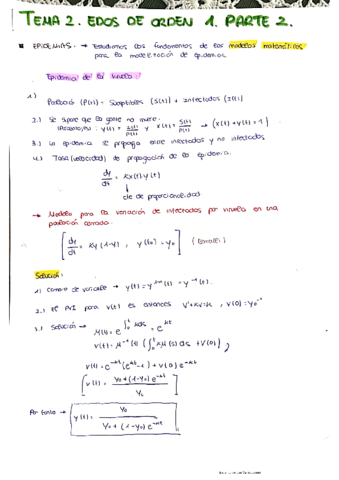 TEMA 2. EDOS DE ORDEN 1. PARTE 2.
EPIDEMIAS. → Estudiamos los fundamentos de los modelos matemáticos
para la modelización de epidemias.
Epidemia de la viruela:
1.)
Población (P(t)) = Susceptibles (S(t)) + Infectados (I(t))
2.) Se supone que la gente no muere.
y(t) = I(t)/P(t) y x(t) = S(t)/P(t) → (x(t) + y(t) = 1)
3.) La epidemia se propaga entre infectados y no infectados
4.) Tasa (velocidad) de propagación de la epidemia.
dy/dt = kx(t)·y(t)
cte de proporcionalidad
→ Modelo para la variación de infectados por viruela en una
población cerrada.
[dy/dt = ky(1-y), y(t₀) = y₀]
Solución:
1) Cambio de variable → v(t) = y¹⁻²(t) = y⁻¹(t).
2.) El PVI para v(t) es entonces v'+kv=k, v(0)=y₀⁻¹
3.) Solución → μ(t) = e^∫₀ᵗ kds = e^kt
v(t) = μ⁻¹(t) (∫₀ᵗ kμ(s) ds + v(0))
v(t) = e^-kt (e^kt - 1) + v(0) e^-kt
[v(t) = y₀ + (1-y₀) e^-kt / y₀]
Por tanto → y(t) = y₀ / y₀ + (1-y₀) e^-kt